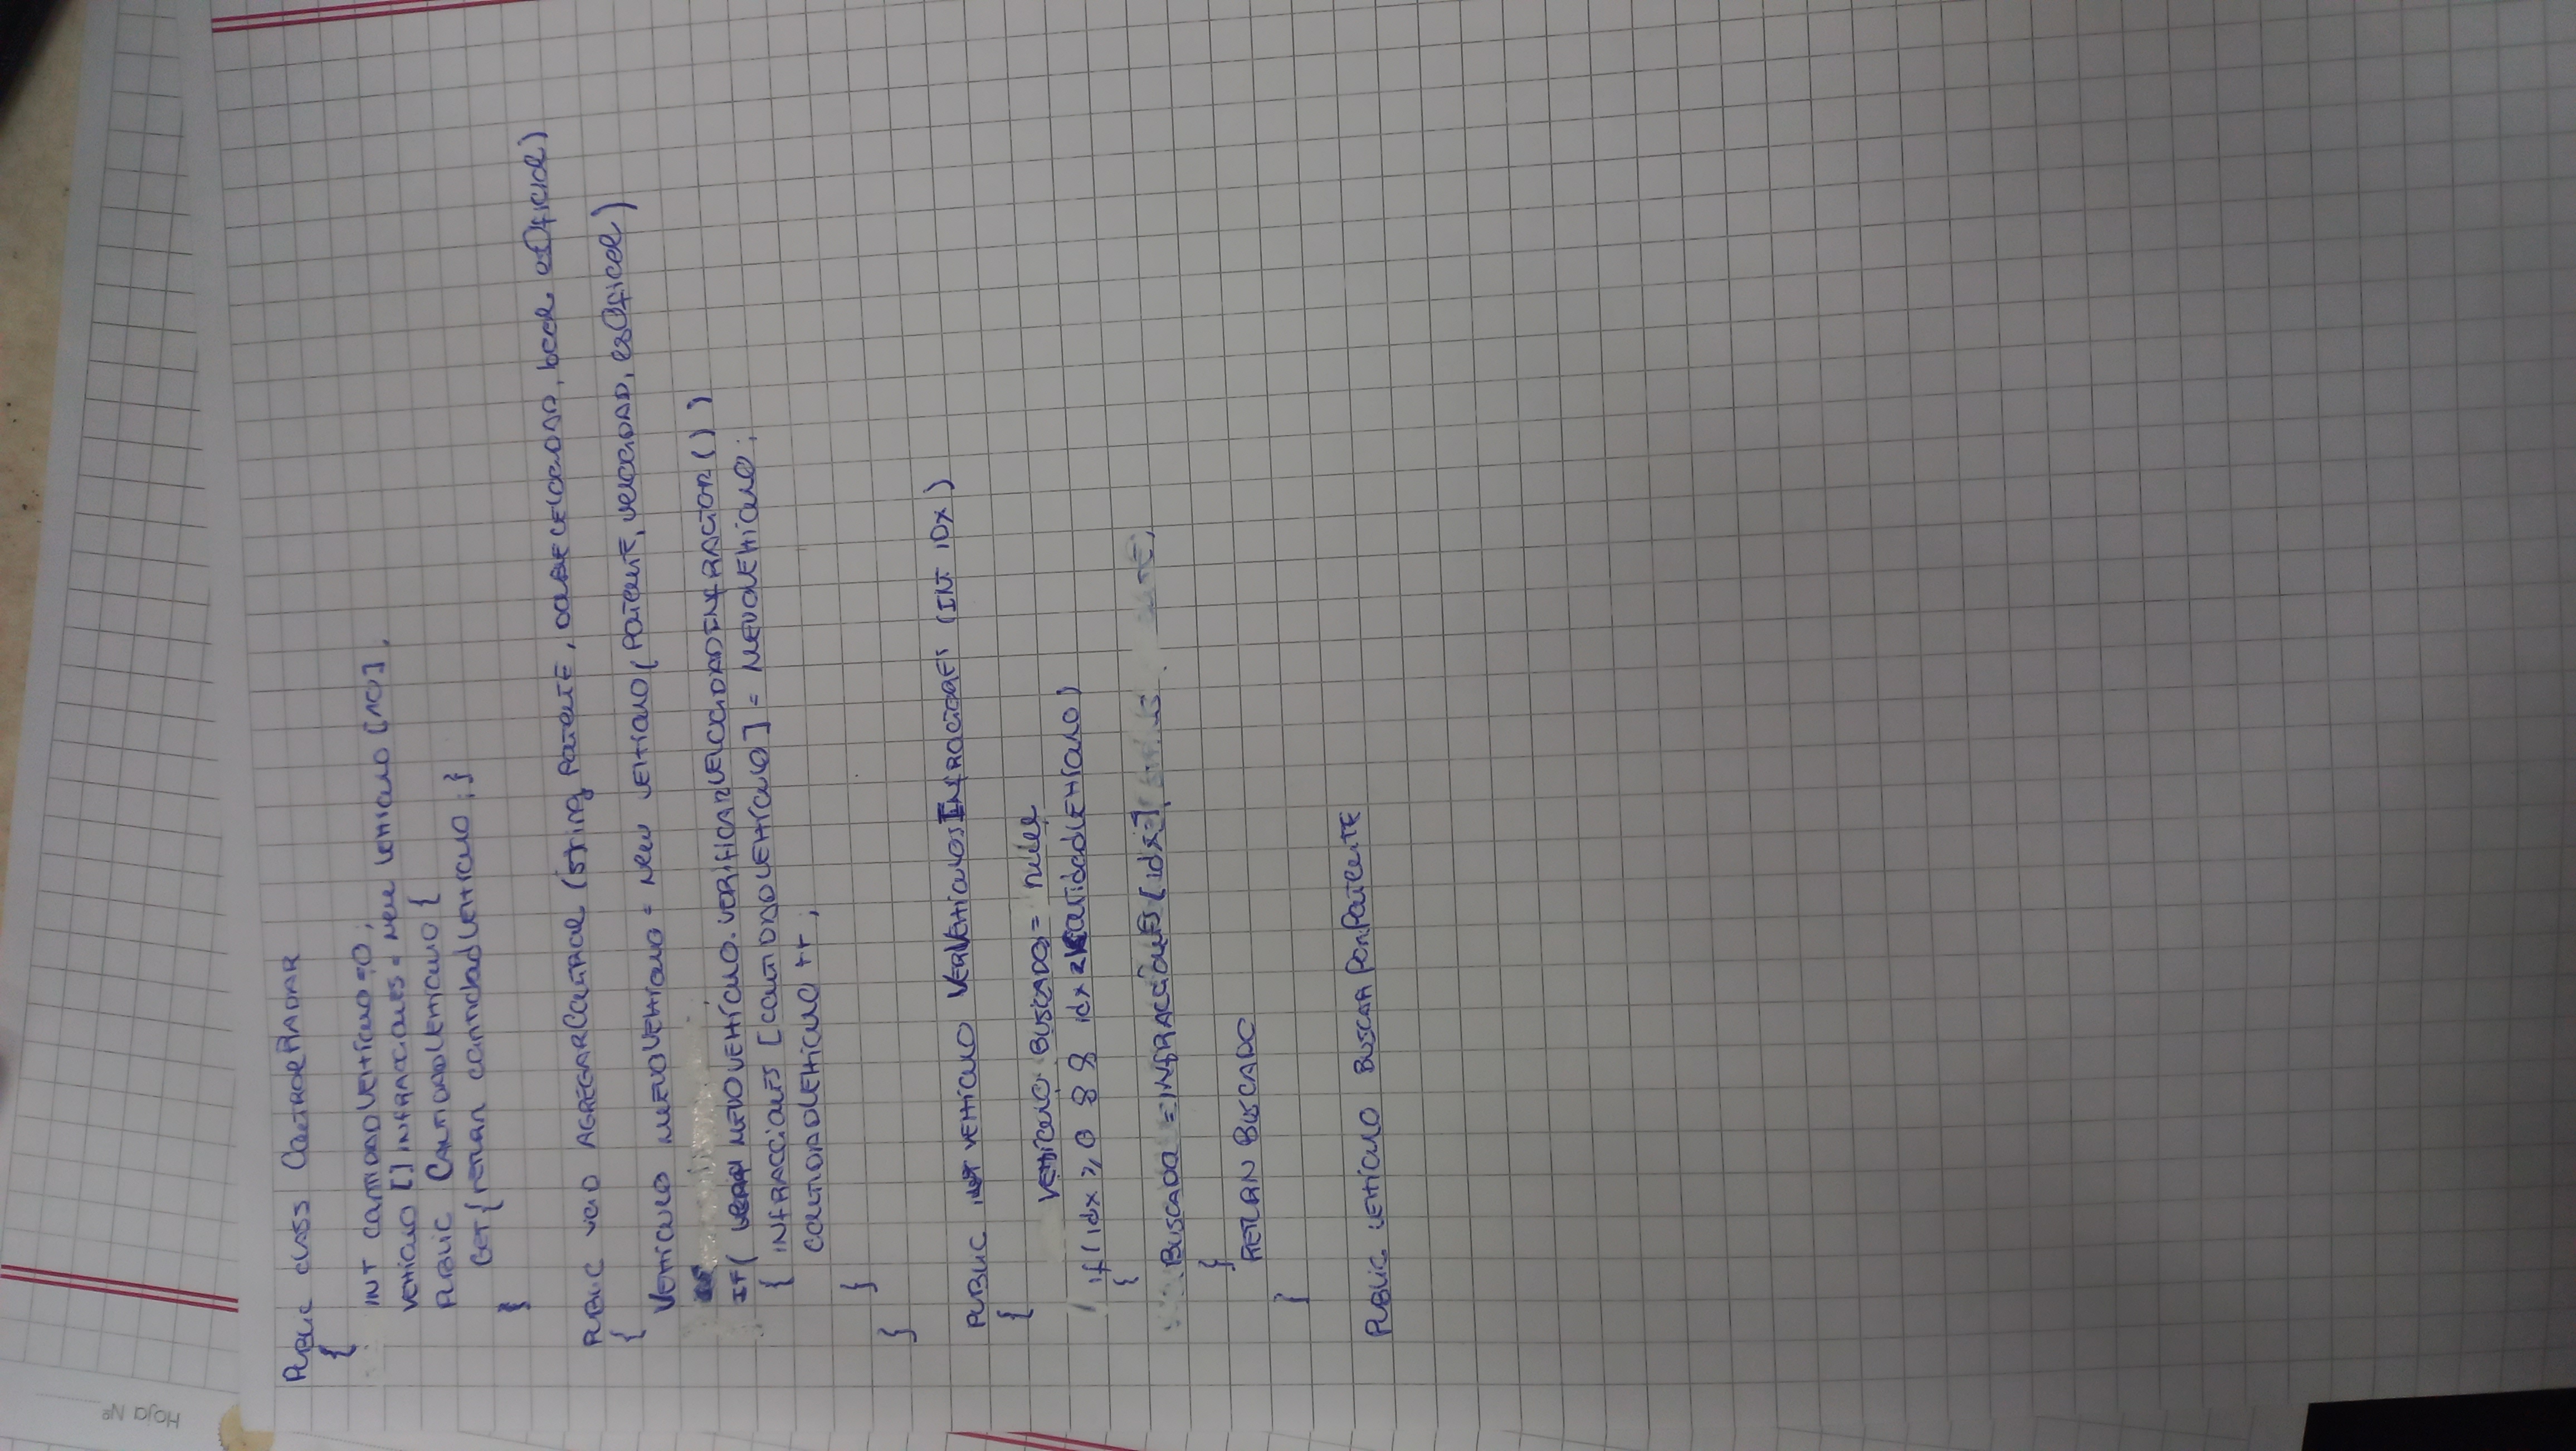 Hoja Nº
PUBLIC CLASS CONTROLRADAR
{
INT CANTIDADVEHÍCULO = 0;
VEHÍCULO [] INFRACCIONES = NEW VEHÍCULO [100].
PUBLIC CANTIDADVEHÍCULO {
GET { RETURN cantidadVEHÍCULO; }
}
PUBLIC VOID AGREGARCONTROL (string PATENTE, DOUBLE VELOCIDAD, bool esOficial)
{
VEHÍCULO NUEVOVEHÍCULO = NEW VEHÍCULO (PATENTE, VELOCIDAD, esOficial)
IF( NUEVOVEHÍCULO.VERIFICARVELOCIDADINFRACTOR())
{ INFRACCIONES [CANTIDADVEHÍCULO] = NUEVOVEHÍCULO;
CANTIDADVEHÍCULO ++;
}
}
PUBLIC VEHÍCULO VERVEHÍCULOSINFRACTORES (INT IDX)
{
VEHÍCULO BUSCADO = null
if( idx ≥ 0 && idx < cantidadVEHÍCULO)
{
BUSCADO = INFRACCIONES [idx]
}
RETURN BUSCADO
}
PUBLIC VEHÍCULO BUSCARPORPATENTE